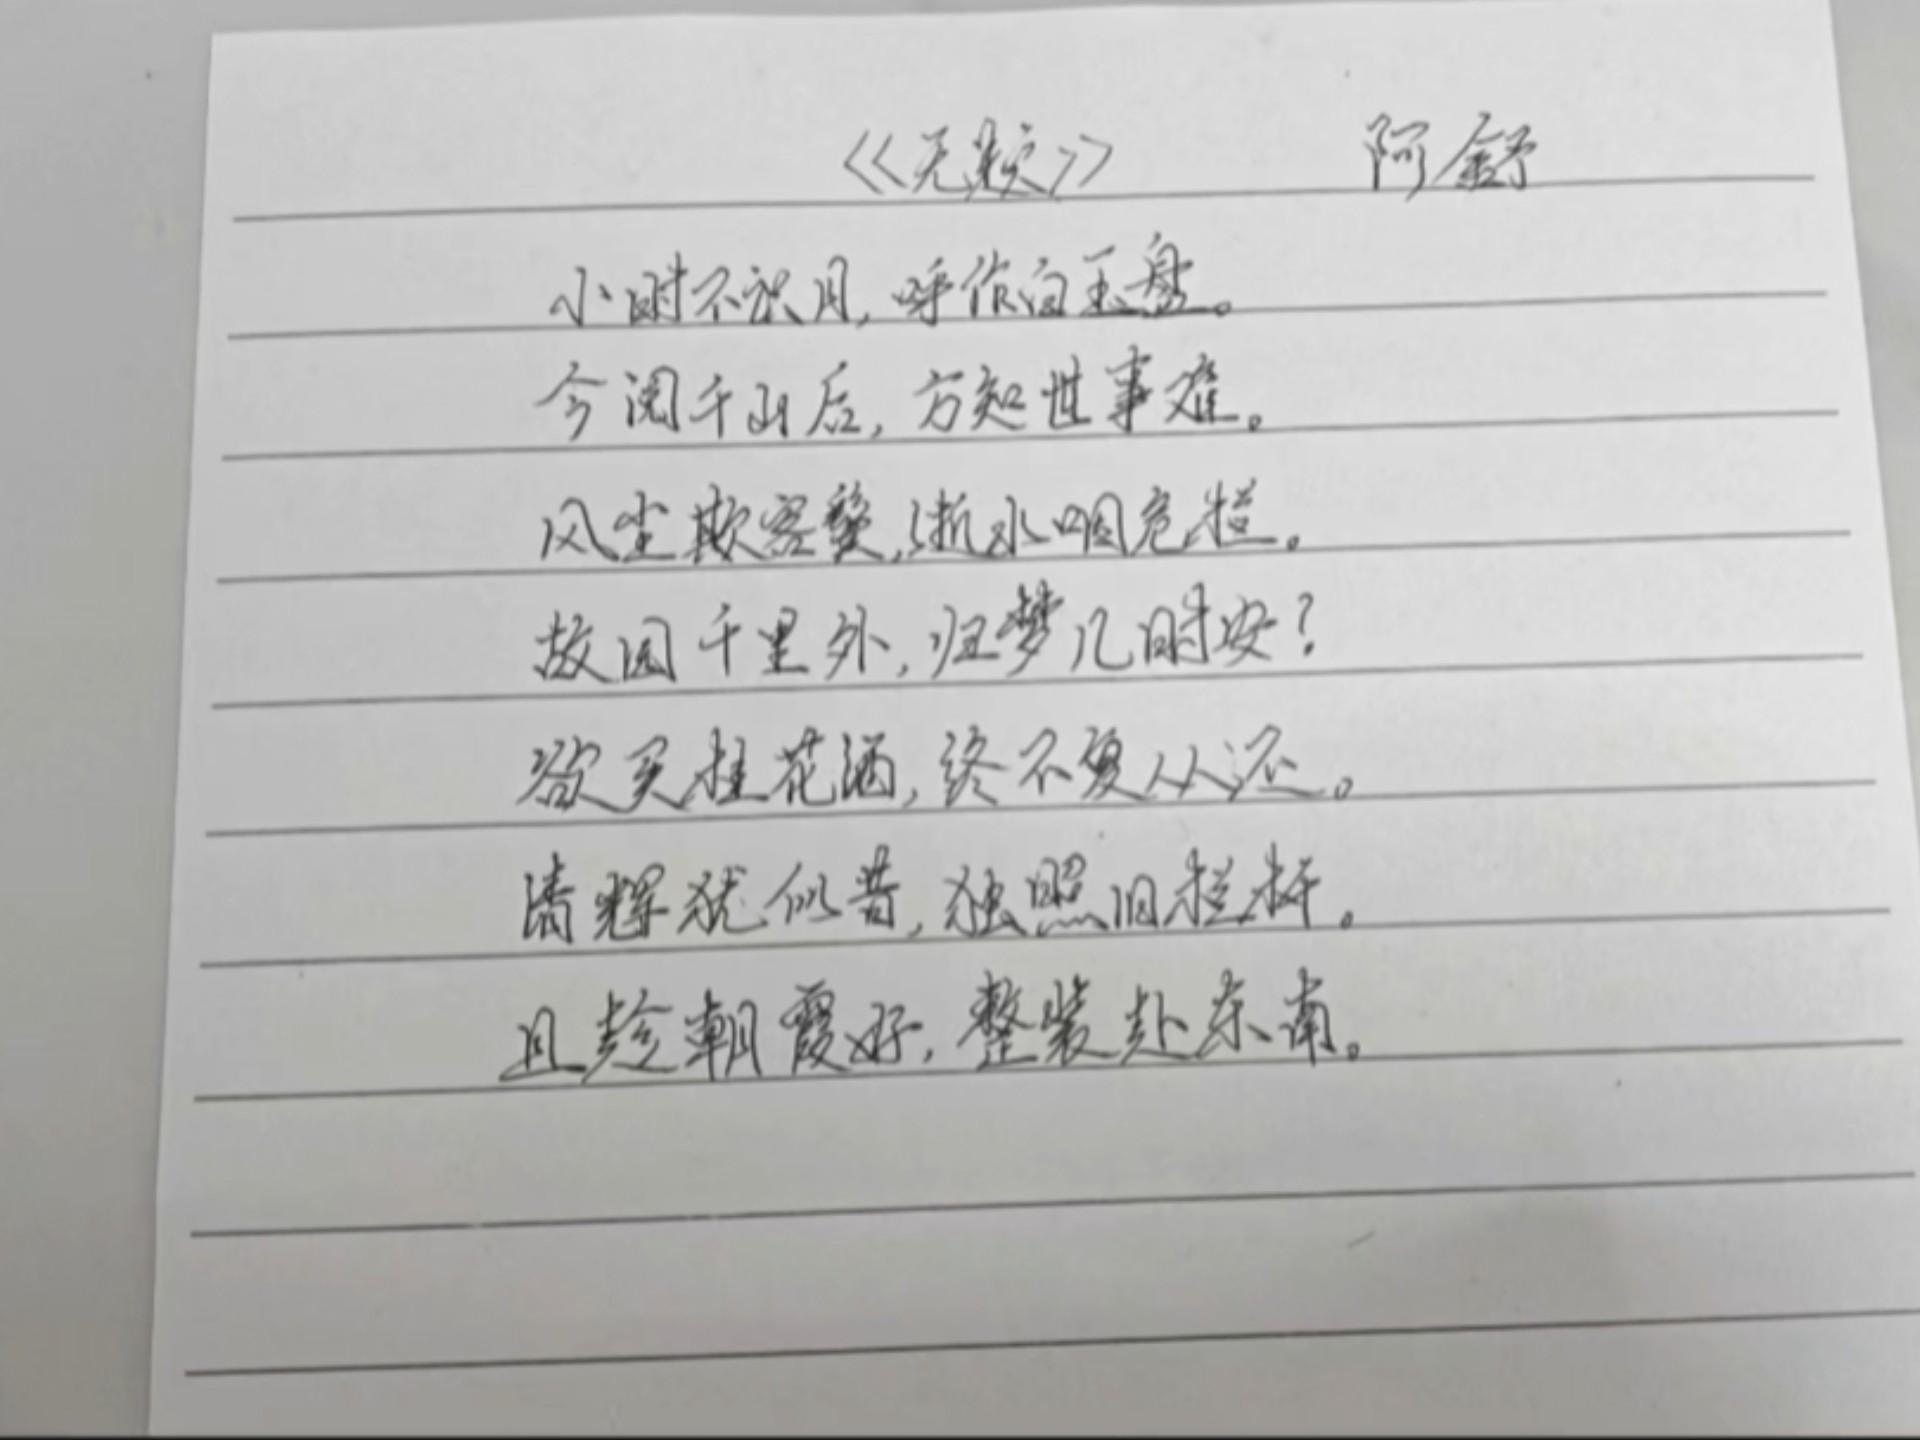 《无题》 阿舒
小时不识月，呼作白玉盘。
今阅千山后，方知世事难。
风尘欺客鬓，浙水咽危栏。
故园千里外，归梦几时安？
欲买桂花酒，终不复从还。
清辉犹似昔，独照旧栏杆。
且趁朝霞好，整装赴东南。